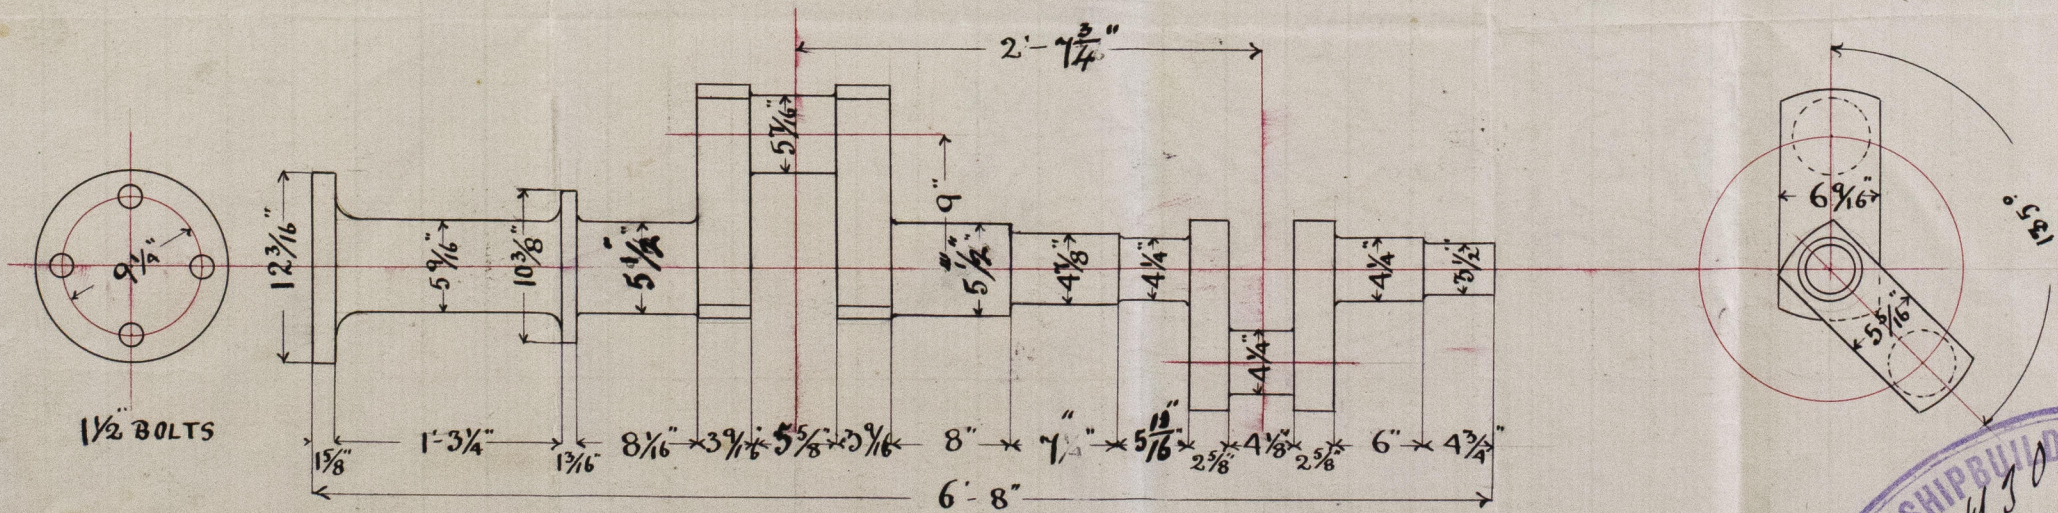 2'-7 3/4"
135°
9 1/2"
12 3/16"
5 9/16"
10 3/8"
5 1/2"
5 7/16"
9"
5 1/2"
4 7/8"
4 1/4"
4 1/4"
4 1/4"
3 1/2"
6 9/16"
5 5/16"
1 1/2" BOLTS
1 5/8" 1'-3 1/4" 1 3/16" 8 1/16" 3 9/16" 5 5/8" 3 9/16" 8" 7" 2 5/8" 4 1/8" 2 5/8" 6" 4 3/4"
6'-8"
SHIPBUILD
430